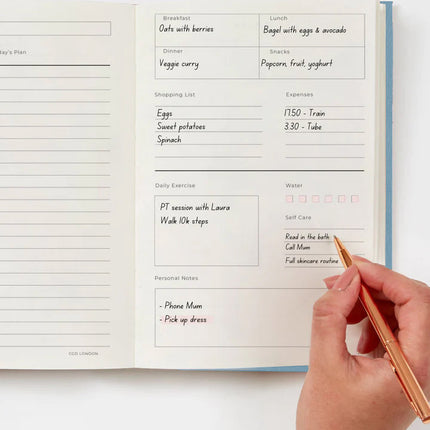 ay's Plan
CGD LONDON
Breakfast
Oats with berries
Lunch
Bagel with eggs & avocado
Dinner
Veggie curry
Snacks
Popcorn, fruit, yoghurt
Shopping List
Eggs
Sweet potatoes
Spinach
Expenses
17.50 - Train
3.30 - Tube
Daily Exercise
PT session with Laura
Walk 10k steps
Water
Self Care
Read in the bath
Call Mum
Full skincare routine
Personal Notes
- Phone Mum
- Pick up dress